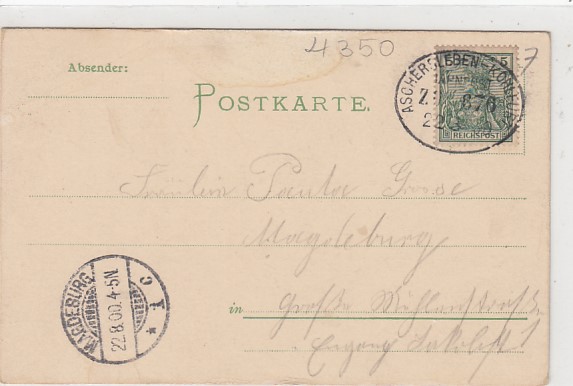 4350
7
Absender:
POSTKARTE.
ASCHERSLEBEN-KÖNNERN
BAHNPOST
Z. 876
22.8
5
REICHSPOST
Fräulein Paula Grosse
Magdeburg
in Große Mühlenstraße
Eingang
MAGDEBURG
22.8.00.4-5N.